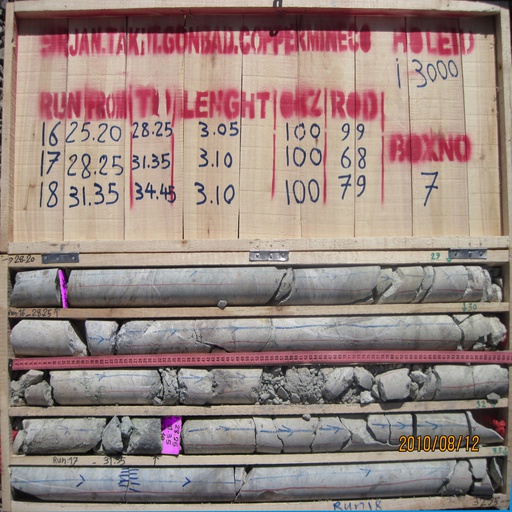 SIRJAN.TAKHT.GONBAD.COPPERMINECO HOLEID
i 3000
RUN FROM TO LENGHT CRZ RQD
16 25.20 28.25 3.05 100 99
17 28.25 31.35 3.10 100 68
18 31.35 34.45 3.10 100 79
BOXNO
7
28.20
29
Run:16 _ 28.25
30
32
2010/08/12
Run:17 - 31.35
Run 18